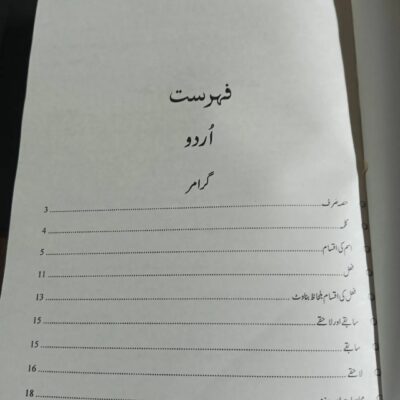 فہرست
اُردو
گرامر
حصہ صرف ........ 3
کلمہ ........ 4
اسم کی اقسام ........ 5
فعل ........ 11
فعل کی اقسام بلحاظ بناوٹ ........ 13
سابقے اور لاحقے ........ 15
سابقے ........ 15
لاحقے ........ 16
18